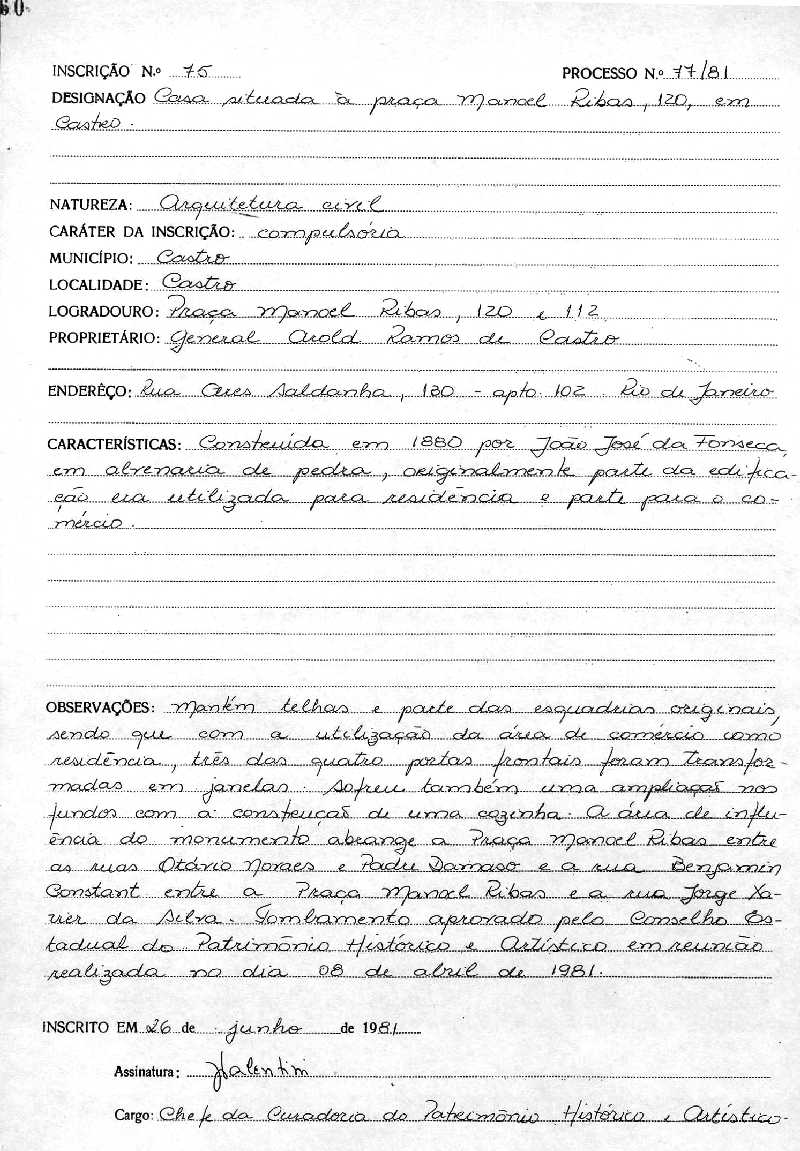 60
INSCRIÇÃO N.º 75 PROCESSO N.º 77/81
DESIGNAÇÃO Casa situada à praça Manoel Ribas, 120, em
Castro.
NATUREZA: Arquitetura civil
CARÁTER DA INSCRIÇÃO: compulsória
MUNICÍPIO: Castro
LOCALIDADE: Castro
LOGRADOURO: Praça Manoel Ribas, 120 e 112
PROPRIETÁRIO: General Arold Ramos de Castro
ENDERÊÇO: Rua Aires Saldanha, 130 - apto. 102 Rio de Janeiro
CARACTERÍSTICAS: Construída em 1880 por João José da Fonseca,
em alvenaria de pedra, originalmente parte da edifica-
ção era utilizada para residência e parte para o co-
mércio.
OBSERVAÇÕES: Mantém telhas e parte das esquadrias originais,
sendo que com a utilização da área de comércio como
residência, três das quatro portas frontais foram transfor-
madas em janelas. Sofreu também uma ampliação nos
fundos com a construção de uma cozinha. A área de influ-
ência do monumento abrange a Praça Manoel Ribas entre
as ruas Otávio Novaes e Padre Damaso e a rua Benjamin
Constant entre a Praça Manoel Ribas e a rua Jorge Xa-
vier da Silva. Tombamento aprovado pelo Conselho Es-
tadual do Patrimônio Histórico e Artístico em reunião
realizada no dia 08 de abril de 1981.
INSCRITO EM 26 de junho de 1981
Assinatura: Valentini
Cargo: Chefe da Curadoria do Patrimônio Histórico e Artístico-